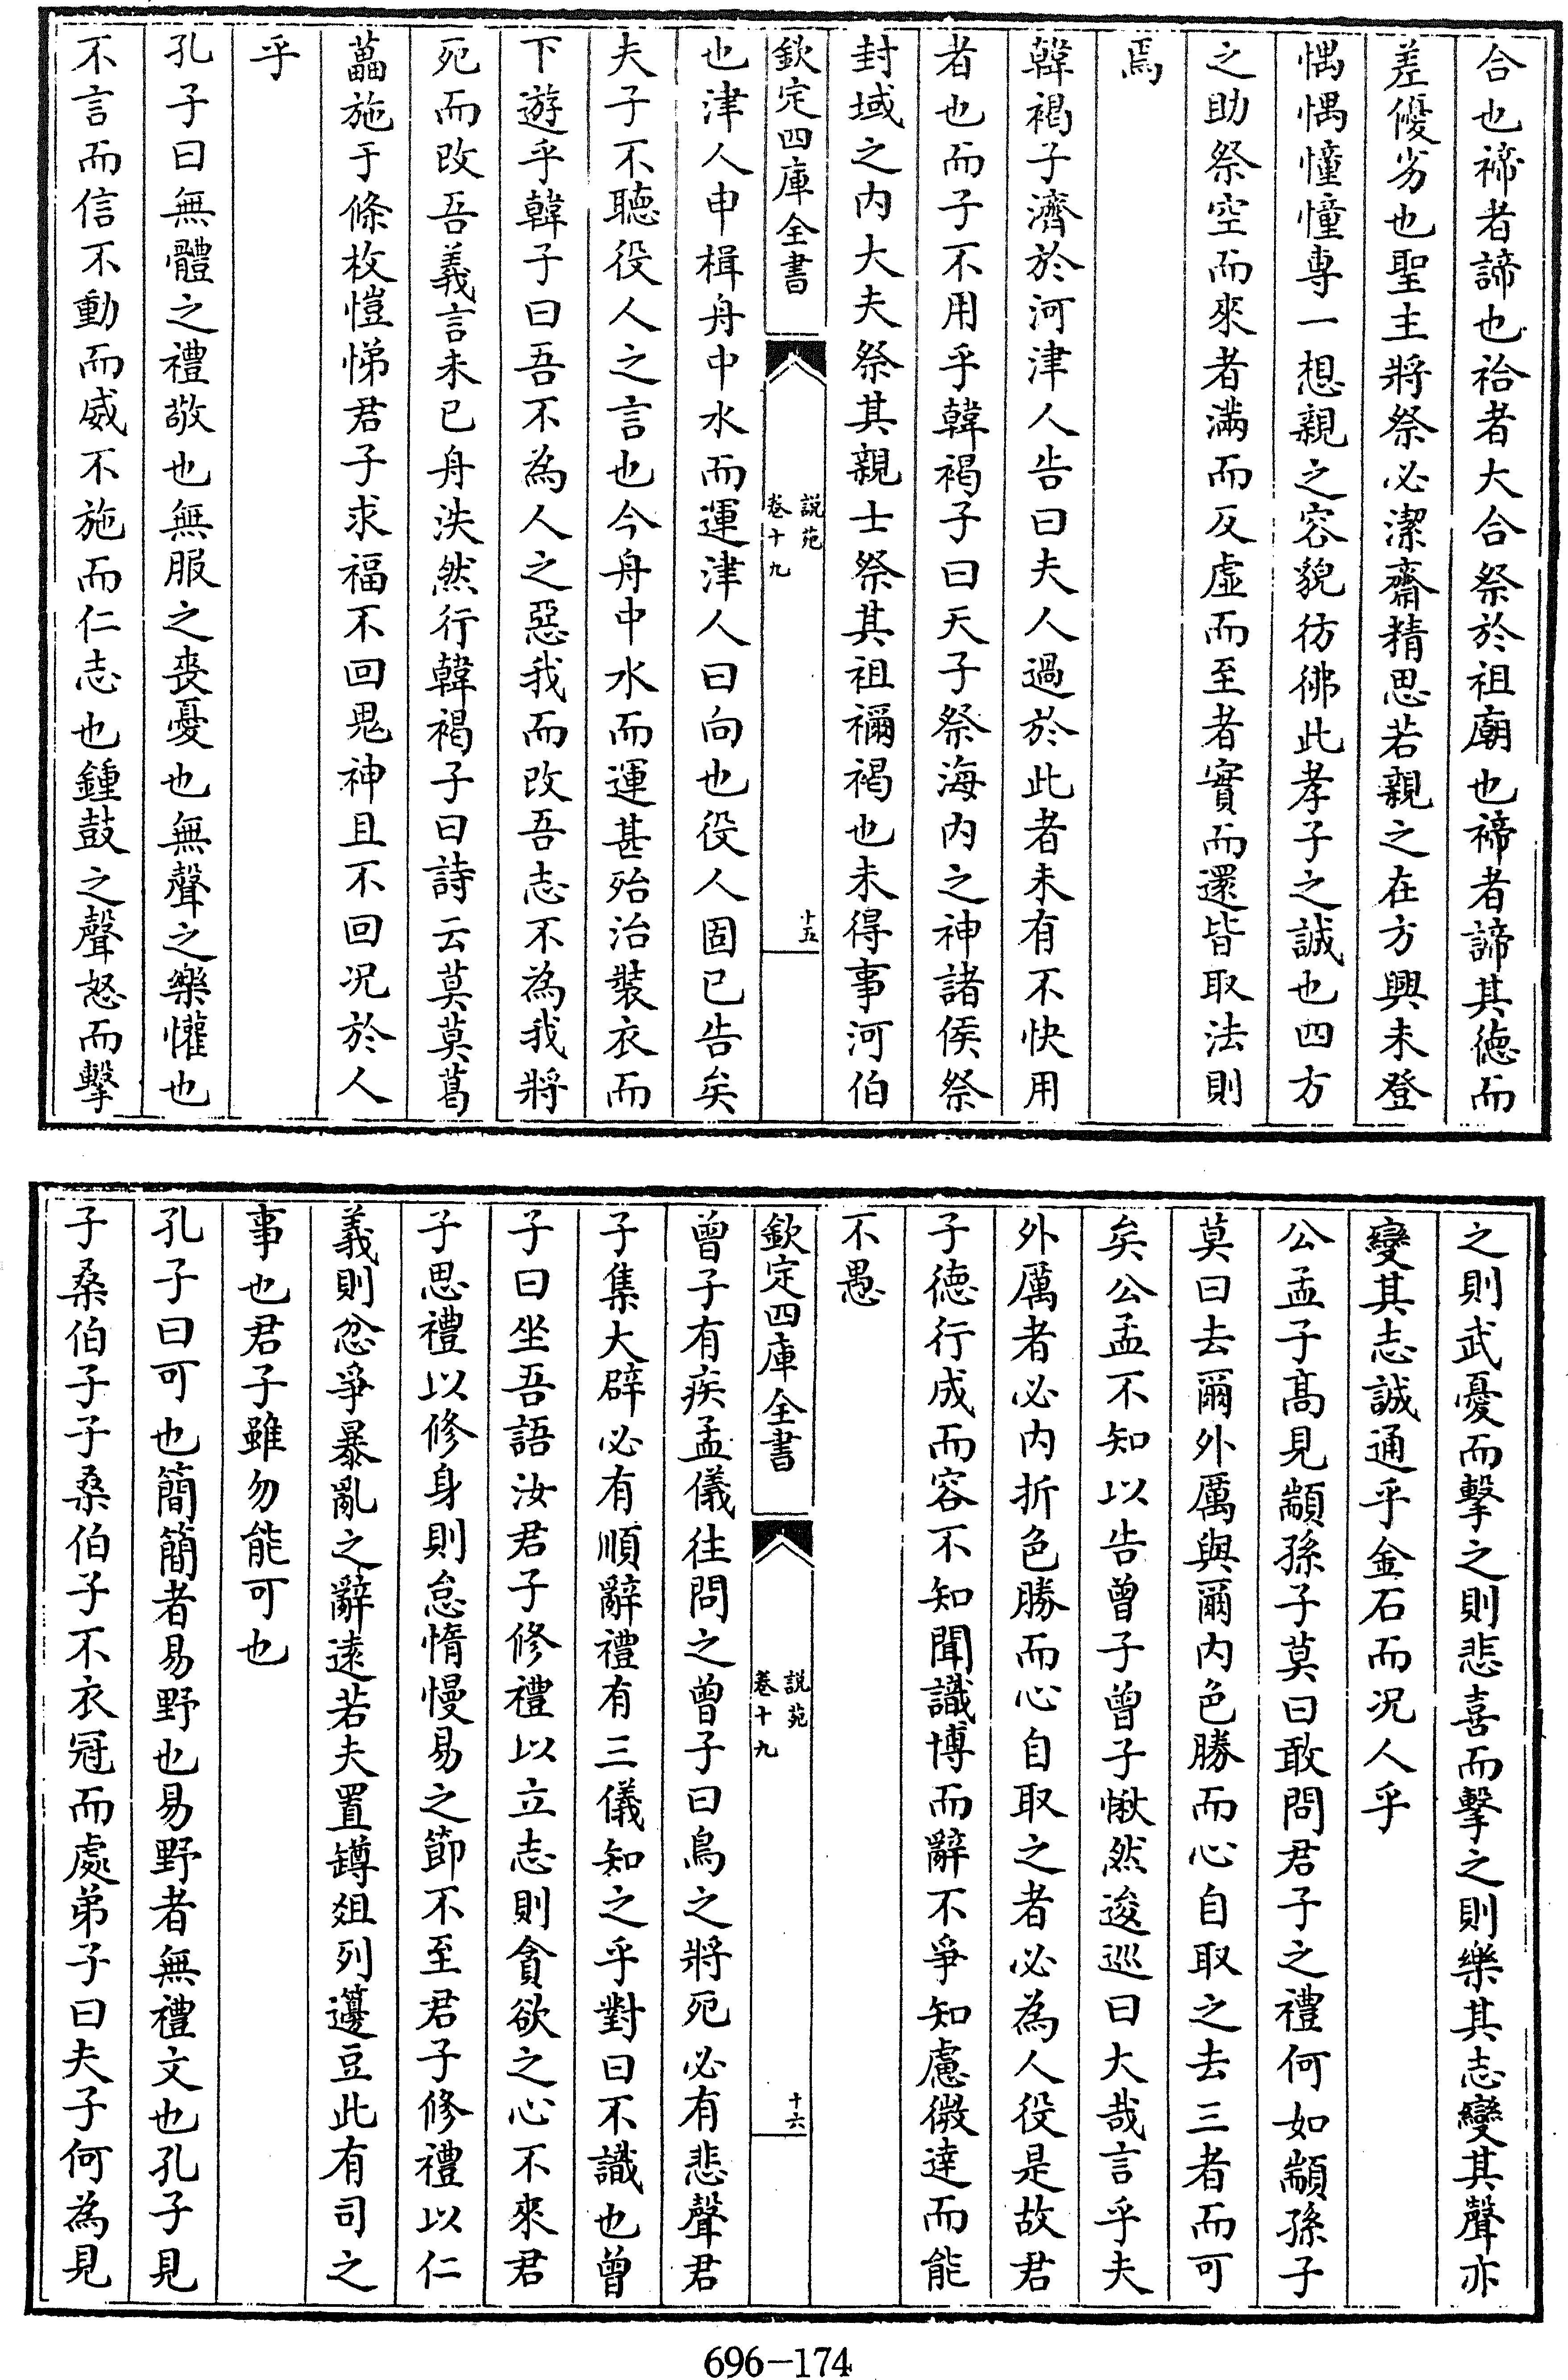 合也禘者諦也祫者大合祭於祖廟也禘者諦其徳而
差優劣也聖主將祭必潔齋精思若親之在方興未登
惆惆憧憧専一想親之容貌彷彿此孝子之誠也四方
之助祭空而來者滿而反虛而至者實而還皆取法則
焉
韓褐子濟於河津人告曰夫人過於此者未有不快用
者也而子不用乎韓褐子曰天子祭海内之神諸侯祭
封域之内大夫祭其親士祭其祖禰褐也未得事河伯
欽定四庫全書
說苑
卷十九
十五
也津人申楫舟中水而運津人曰向也役人固已告矣
夫子不聽役人之言也今舟中水而運甚殆治裝衣而
下遊乎韓子曰吾不為人之惡我而改吾志不為我將
死而改吾義言未已舟泆然行韓褐子曰詩云莫莫葛
藟施于條枚愷悌君子求福不回鬼神且不回况於人
乎
孔子曰無體之禮敬也無服之喪憂也無聲之樂懽也
不言而信不動而威不施而仁志也鍾鼓之聲怒而擊
之則武憂而擊之則悲喜而擊之則樂其志變其聲亦
變其志誠通乎金石而况人乎
公孟子高見顓孫子莫曰敢問君子之禮何如顓孫子
莫曰去爾外厲與爾内色勝而心自取之去三者而可
矣公孟不知以告曾子曾子愀然逡巡曰大哉言乎夫
外厲者必内折色勝而心自取之者必為人役是故君
子徳行成而容不知聞識博而辭不爭知慮微達而能
不愚
欽定四庫全書
說苑
卷十九
十六
曾子有疾孟儀往問之曾子曰鳥之將死必有悲聲君
子集大辟必有順辭禮有三儀知之乎對曰不識也曾
子曰坐吾語汝君子修禮以立志則貪欲之心不來君
子思禮以修身則怠惰慢易之節不至君子修禮以仁
義則忿爭暴亂之辭遠若夫置罇俎列籩豆此有司之
事也君子雖勿能可也
孔子曰可也簡簡者易野也易野者無禮文也孔子見
子桑伯子子桑伯子不衣冠而處弟子曰夫子何為見
696-174